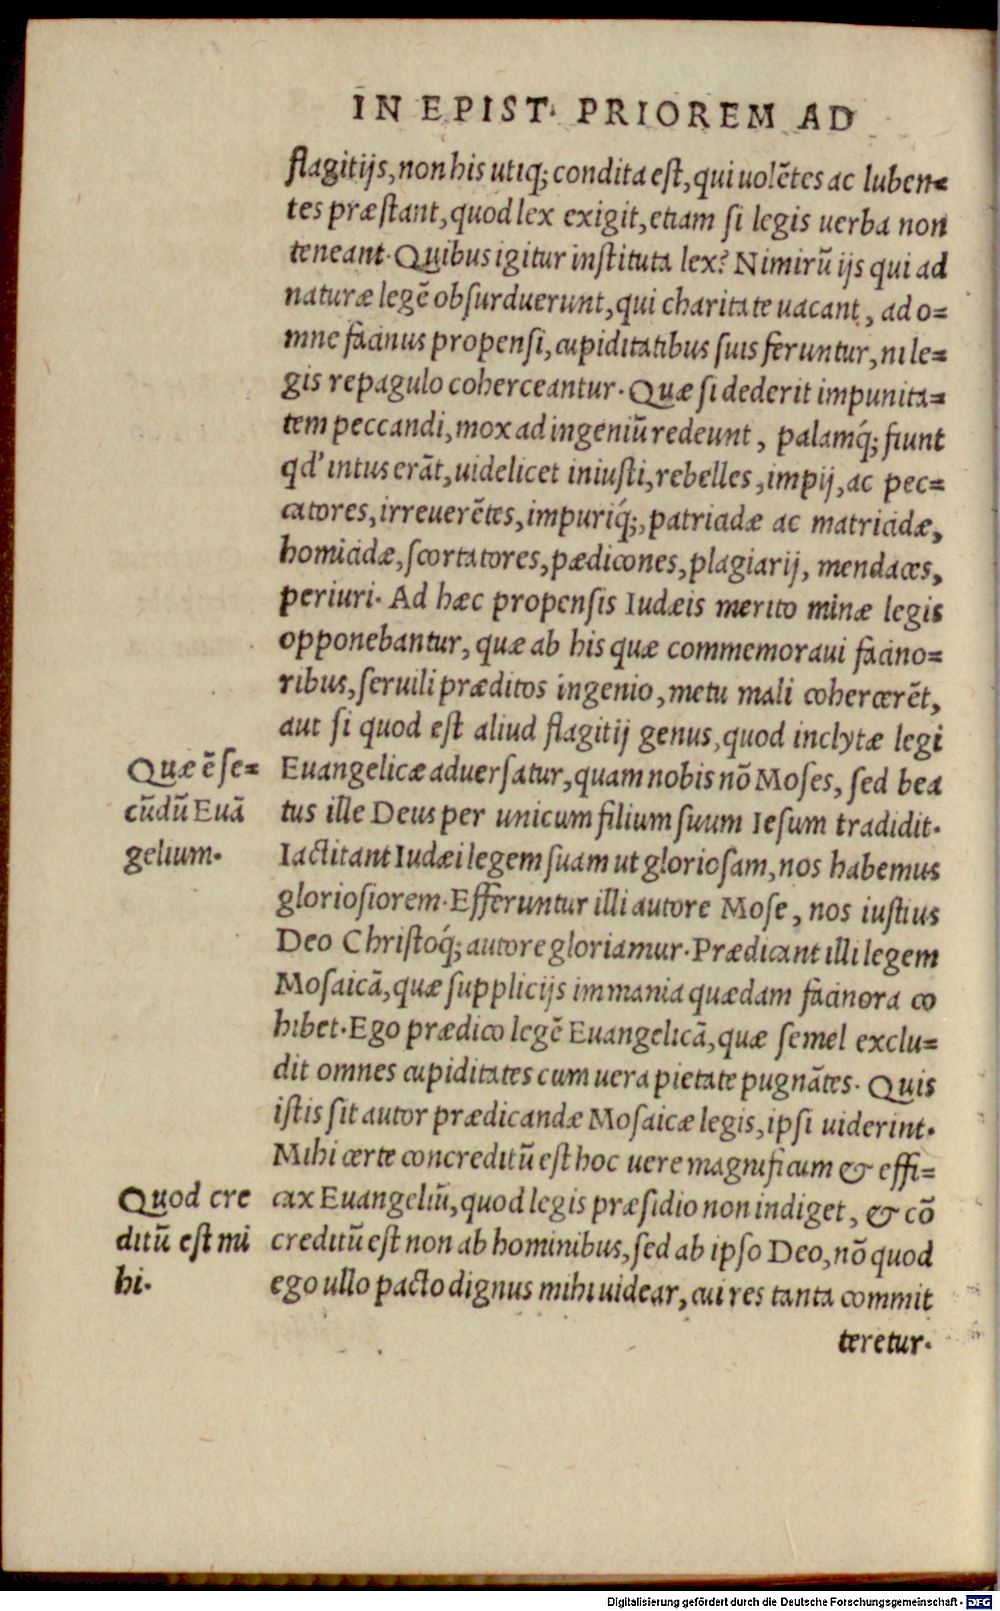 IN EPIST. PRIOREM AD
flagitijs, non his utiq́; condita est, qui uolẽtes ac luben=
tes præstant, quod lex exigit, etiam si legis uerba non
teneant. Quibus igitur instituta lex? Nimirũ ijs qui ad
naturæ legẽ obsurduerunt, qui charitate uacant, ad o=
mne facinus propensi, cupiditatibus suis feruntur, ni le=
gis repagulo coherceantur. Quæ si dederit impunita=
tem peccandi, mox ad ingeniũ redeunt, palamq́; fiunt
qd' intus erãt, uidelicet iniusti, rebelles, impij, ac pec=
catores, irreuerẽtes, impuriq́;, patricidæ ac matricidæ,
homicidæ, scortatores, pædicones, plagiarij, mendaces,
periuri. Ad hæc propensis Iudæis merito minæ legis
opponebantur, quæ ab his quæ commemoraui facino=
ribus, seruili præditos ingenio, metu mali cohercerẽt,
aut si quod est aliud flagitij genus, quod inclytæ legi
Quæ ẽ se=
cũdũ Euã
gelium.
Euangelicæ aduersatur, quam nobis nõ Moses, sed bea
tus ille Deus per unicum filium suum Iesum tradidit.
Iactitant Iudæi legem suam ut gloriosam, nos habemus
gloriosiorem. Efferuntur illi autore Mose, nos iustius
Deo Christoq́; autore gloriamur. Prædicant illi legem
Mosaicã, quæ supplicijs immania quædam facinora co
hibet. Ego prædico legẽ Euangelicã, quæ semel exclu=
dit omnes cupiditates cum uera pietate pugnãtes. Quis
istis sit autor prædicandæ Mosaicæ legis, ipsi uiderint.
Mihi certe concreditũ est hoc uere magnificum & effi=
Quod cre
ditũ est mi
hi.
cax Euangeliũ, quod legis præsidio non indiget, & cõ
creditũ est non ab hominibus, sed ab ipso Deo, nõ quod
ego ullo pacto dignus mihi uidear, cui res tanta commit
teretur.
Digitalisierung gefördert durch die Deutsche Forschungsgemeinschaft - DFG